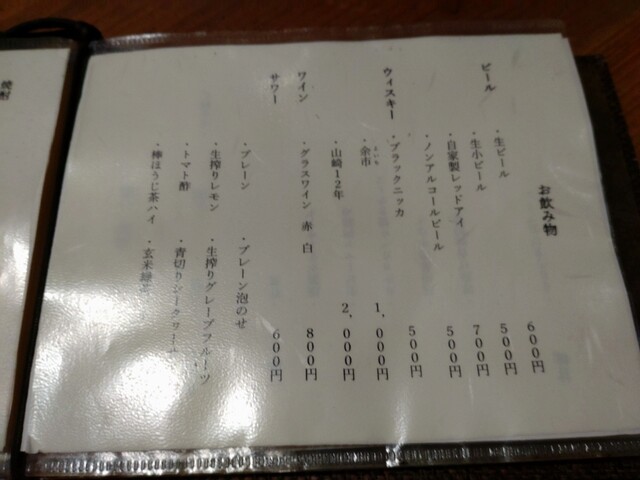 お飲み物
ビール
・生ビール 600円
・生小ビール 500円
・自家製レッドアイ 700円
・ノンアルコールビール 500円
ウィスキー
・ブラックニッカ 500円
・余市 よいち 1,000円
・山崎12年 2,000円
ワイン
・グラスワイン 赤 白 800円
サワー 600円
・プレーン ・プレーン泡のせ
・生搾りレモン ・生搾りグレープフルーツ
・トマト酢 ・青切りシークワー
・棒ほうじ茶ハイ ・玄米緑
焼酎